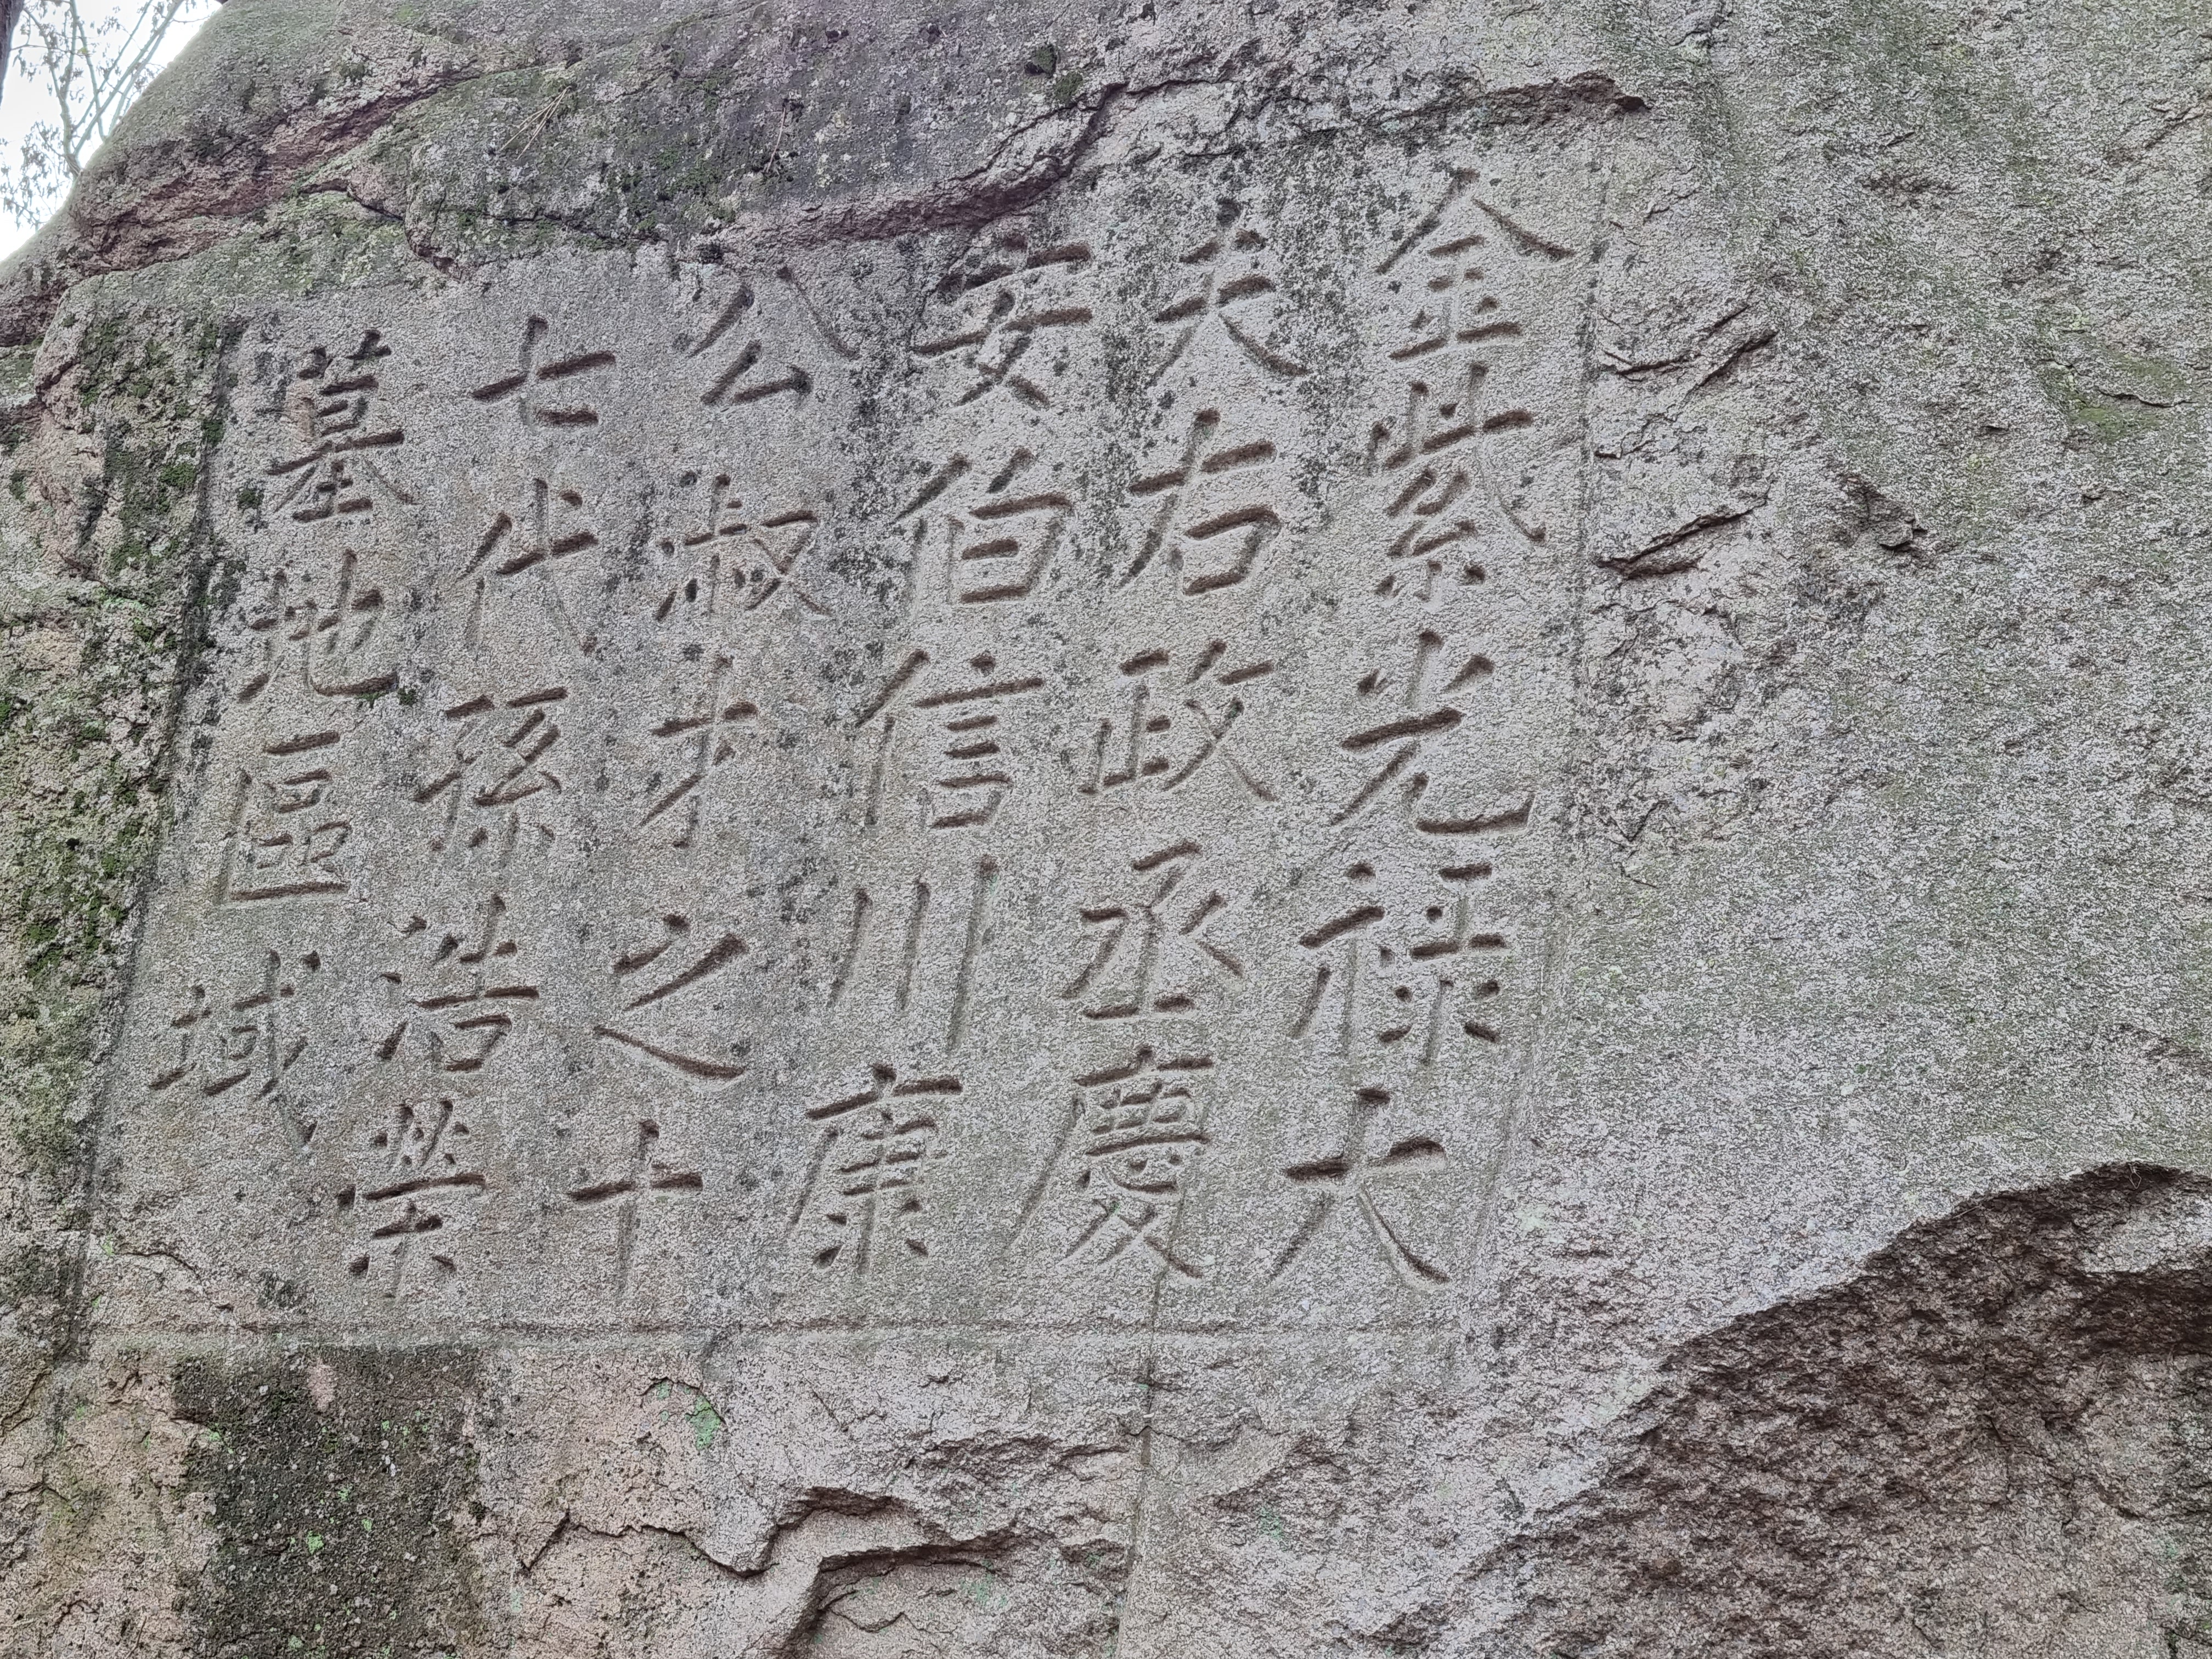 金紫光禄大
夫右政丞慶
安伯信川康
公淑才之十
七代孫浩榮
墓地區域